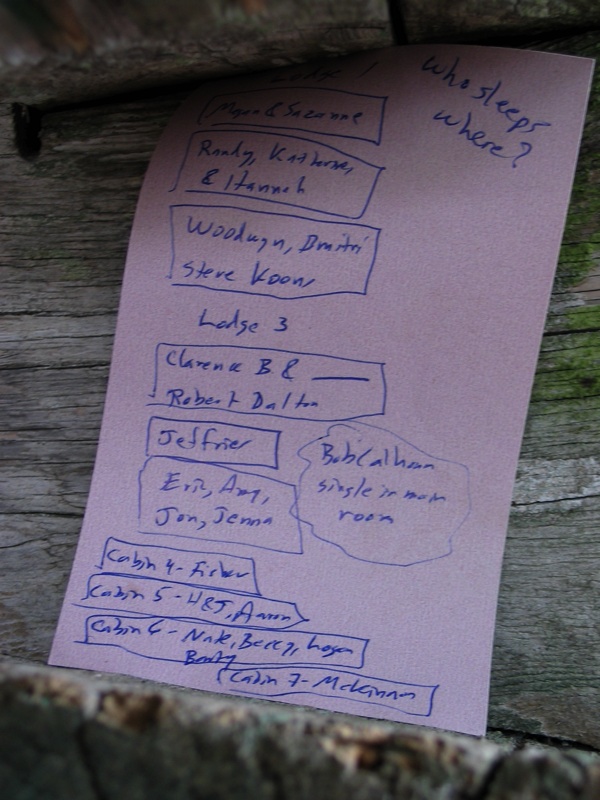 who sleeps
where?
Lodge 1
& Suzanne
Randy, Katherine,
& Hannah
Woodwyn, Dmitri
Steve Koons
Lodge 3
Clarence B &
Robert Dalton
Jeffries
Bob Calhoun
single in main
room
Eric, Amy,
Jon, Jenna
Cabin 4 - Fisher
Cabin 5 - H&J, Aaron
Cabin 6 - Nate, Becky, Logan
Cabin 7 - McKinnon